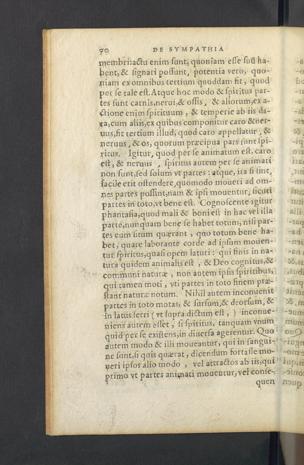 90 DE SYMPATHIA
membri: actu enim sunt, quoniam esse suũ ha-
bent, & signari possunt, potentia verò, quo-
niam ex omnibus tertium quoddam fit, quod
per se tale est. Atque hoc modo & spiritus par-
tes sunt carnis, nerui, & ossis, & aliorum, ex a-
ctione enim spirituum, & temperie ab iis da-
ta, cum aliis, ex quibus componitur caro & ner-
uus, fit tertium illud, quod caro appellatur, &
neruus, & os, quorum præcipua pars sunt spi-
ritus. Igitur, quod per se animatum est, caro
est, & neruus, spiritus autem per se animati
non sunt, sed solum vt partes: atque, ita si sint,
facile erit ostendere, quomodo moueri ad om-
nes partes possint, nam & ipsi mouentur, sicuti
partes in toto, vt bene est. Cognoscente igitur
phantasia, quod mali & boni est in hac vel illa
parte, nunquam bene se habet totum, nisi par-
tes eum situm quærant, quo totum bene ha-
bet, quare laborante corde ad ipsum mouen-
tur spiritus, quasi opem laturi: qui finis in na-
tura quidem animalis est, & Deo cognitus, &
communi naturæ, non autem ipsis spiritibus,
qui tamen moti, vti partes in toto finem præ-
stant naturæ notum. Nihil autem inconuenit
partes in toto motas, & sursum, & deorsum, &
in latus ferri (vt supra dictum est,) inconue-
niens autem esset, si spiritus, tanquam vnum
quid per se existens, in diuersa ageretur. Quo
autem modo & illi moueantur, qui in sangui-
ne sunt, si quis quærat, dicendum fortasse mo-
ueri ipsos alio modo, vel attractos ab iis, qui
primo vt partes animati mouentur, vel conse-
quen